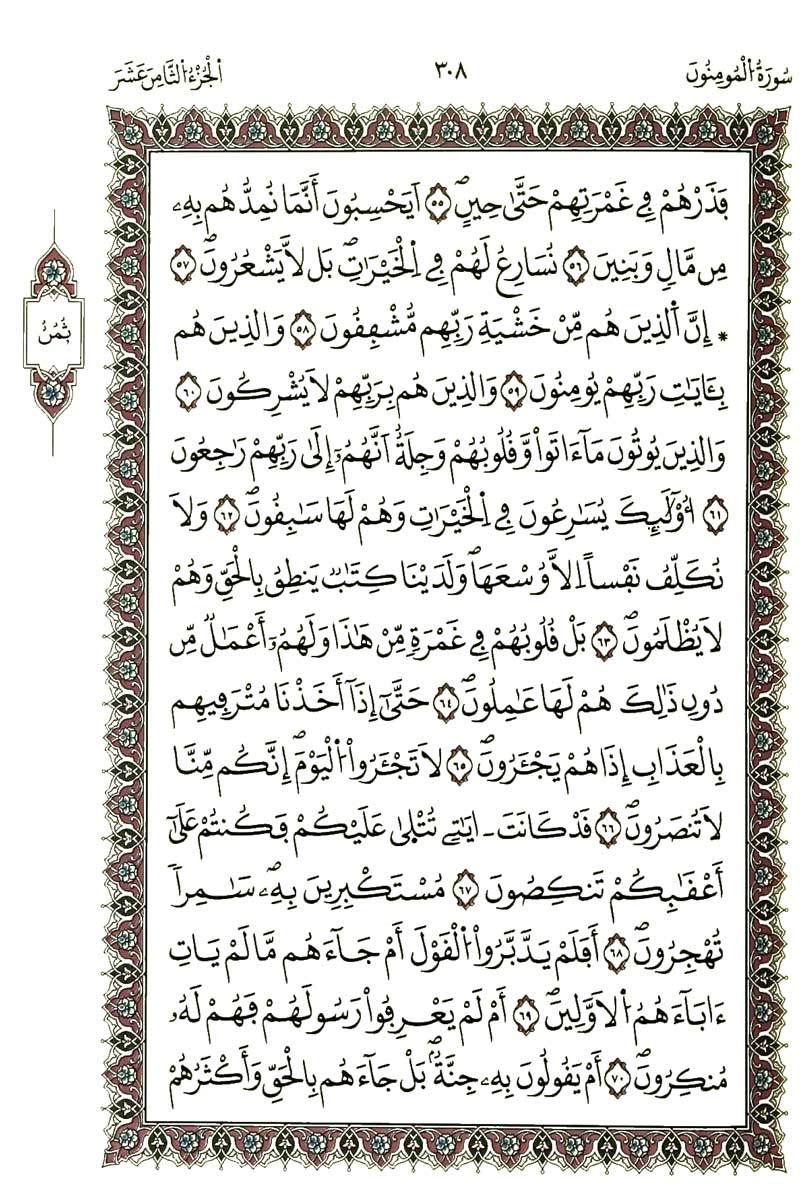 سُورَةُ الْمُومِنُونَ ٣٠٨ الْجُزْءُ الثَّامِنَ عَشَرَ
فَذَرْهُمْ فِے غَمْرَتِهِمْ حَتَّىٰ حِينٍۖ ٥٥ اَيَحْسِبُونَ أَنَّمَا نُمِدُّهُم بِهِۦ
مِن مَّالٍ وَبَنِينَ ٥٦ نُسَارِعُ لَهُمْ فِے اِ۬لْخَيْرَٰتِۖ بَل لَّا يَشْعُرُونَۖ ٥٧
* إِنَّ اَ۬لذِينَ هُم مِّنْ خَشْيَةِ رَبِّهِم مُّشْفِقُونَ ٥٨ وَالذِينَ هُم
بِـَٔايَٰتِ رَبِّهِمْ يُومِنُونَ ٥٩ وَالذِينَ هُم بِرَبِّهِمْ لَا يُشْرِكُونَ ٦٠
وَالذِينَ يُوتُونَ مَآ ءَاتَواْ وَّقُلُوبُهُمْ وَجِلَةٌ اَنَّهُمُۥٓ إِلَىٰ رَبِّهِمْ رَٰجِعُونَ
٦١ أُوْلَٰٓئِكَ يُسَٰرِعُونَ فِے اِ۬لْخَيْرَٰتِ وَهُمْ لَهَا سَٰبِقُونَۖ ٦٢ وَلَا
نُكَلِّفُ نَفْساً اِلَّا وُسْعَهَاۖ وَلَدَيْنَا كِتَٰبٌ يَنطِقُ بِالْحَقِّ وَهُمْ
لَا يُظْلَمُونَۖ ٦٣ بَلْ قُلُوبُهُمْ فِے غَمْرَةٍ مِّنْ هَٰذَا وَلَهُمُۥٓ أَعْمَٰلٌ مِّن
دُونِ ذَٰلِكَ هُمْ لَهَا عَٰمِلُونَۖ ٦٤ حَتَّىٰٓ إِذَآ أَخَذْنَا مُتْرَفِيهِم
بِالْعَذَابِ إِذَا هُمْ يَجْـَٔرُونَۖ ٦٥ لَا تَجْـَٔرُواْ اُ۬لْيَوْمَۖ إِنَّكُم مِّنَّا
لَا تُنصَرُونَۖ ٦٦ قَدْ كَانَتَ ـ ايَٰتِے تُتْلَىٰ عَلَيْكُمْ فَكُنتُمْ عَلَىٰٓ
أَعْقَٰبِكُمْ تَنكِصُونَ ٦٧ مُسْتَكْبِرِينَ بِهِۦۖ سَٰمِراً
تُهْجِرُونَۖ ٦٨ أَفَلَمْ يَدَّبَّرُواْ اُ۬لْقَوْلَ أَمْ جَآءَهُم مَّا لَمْ يَاتِ
ءَابَآءَهُمُ اُ۬لَاوَّلِينَۖ ٦٩ أَمْ لَمْ يَعْرِفُواْ رَسُولَهُمْ فَهُمْ لَهُۥ
مُنكِرُونَۖ ٧٠ أَمْ يَقُولُونَ بِهِۦ جِنَّةُۢۖ بَلْ جَآءَهُم بِالْحَقِّ وَأَكْثَرُهُمْ
ثُمُنُ